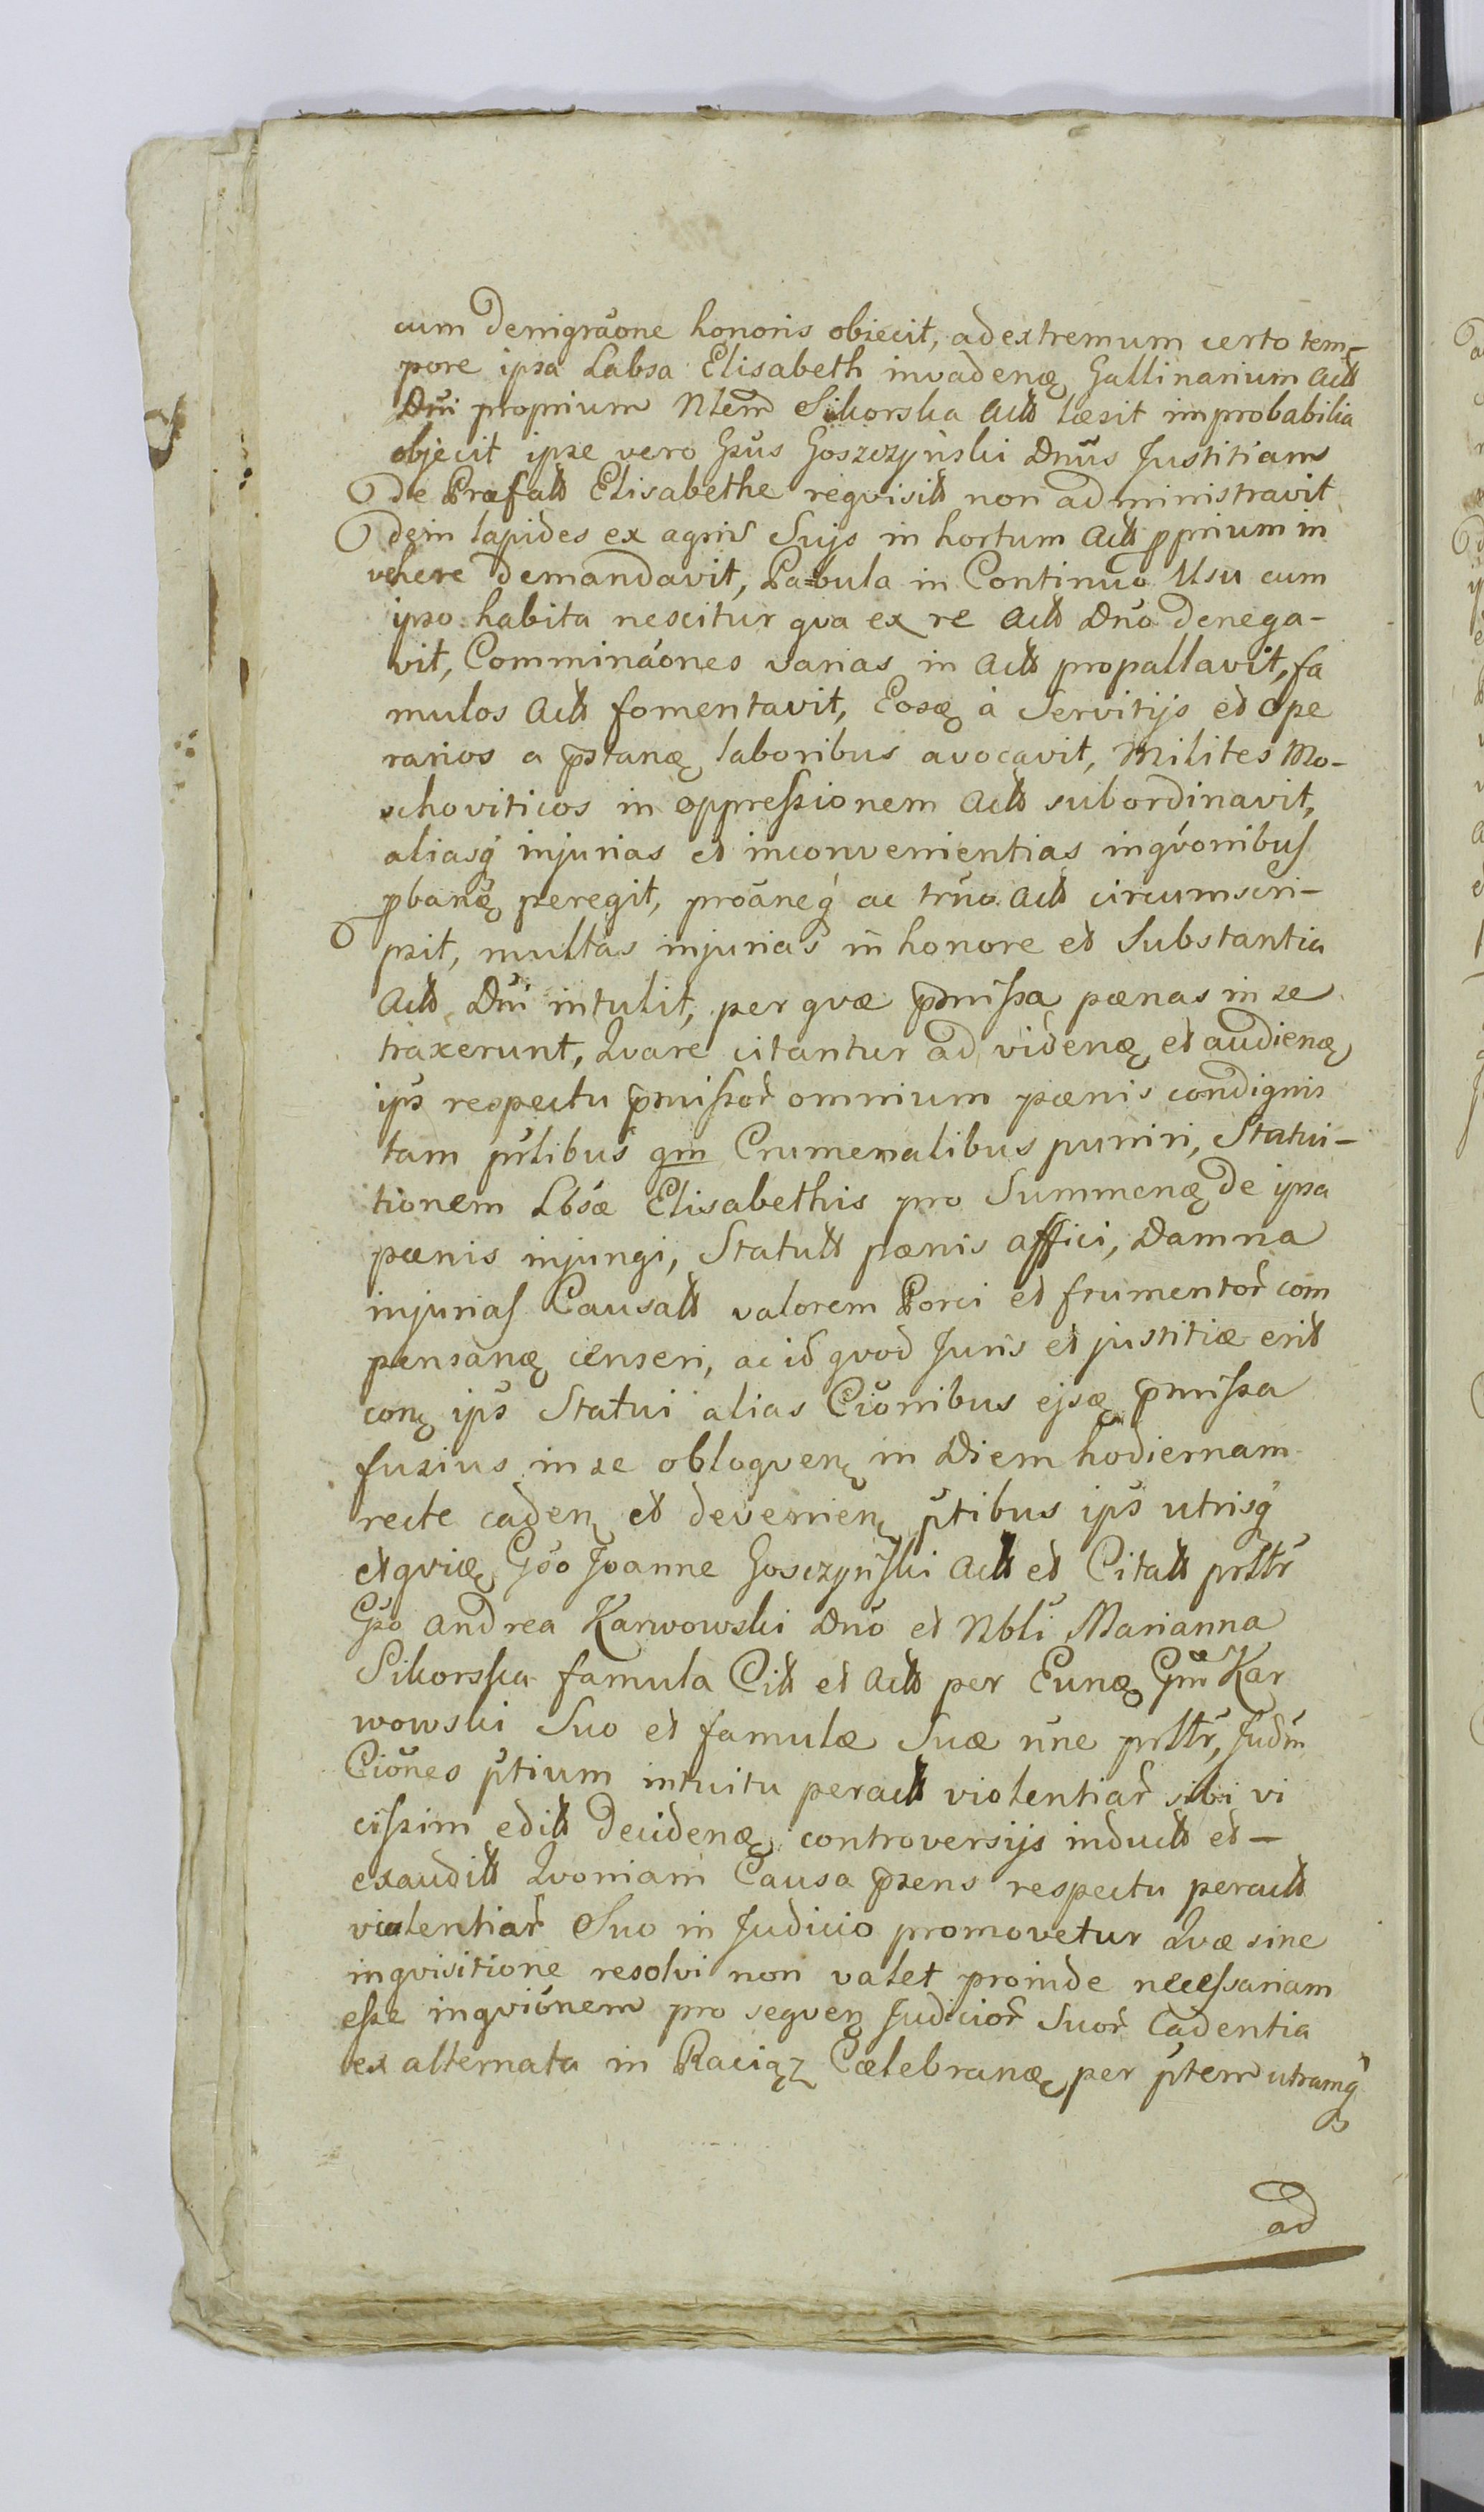 cum denigraõne honoris obiecit, ad extremum certo tem-
pore ipsa Labsa Elisabeth invadenę Gallinarium Actt
Dñi proprium Nlem Sikorska Actt læsit improbabilia
objecit ipse vero Gsus Goszczyński Dnũs Justitiam
de Præfatt Elisabethe reqvisitt non administravit
dein lapides ex agris Suis in hortum Actt pprium in
vehere demandavit, Pabula in Continuo Usu cum
ipso habita nescitur qva ex re Actt Dño denega-
vit, Comminãones varias in Actt propallavit, fa
mulos Actt fomentavit, Eosq à Servitijs et ope
rarios a p̃stanę laboribus avocavit, Milites Mo-
schoviticos in oppressionem Actt subordinavit,
aliasq́ injurias et inconvenientias inqv́onibus
pbanę peregit, proãneq́ ac trño Actt circumscri-
psit, multas injurias in honore et Substantia
Actt Dñi intulit, per qvæ p̃missa pœnas in se
traxerunt, Qvare citantur ad videnę et audienę
ips̃ respectu p̃missor̃ omnium pœnis condignis
tam p̃libus qm Crumenalibus puniri, Statui-
tionem Lbsæ Elisabethis pro Summenę de ipsa
pœnis injungi, Statutt pœnis affici, Damna
injurias Causatt valorem Porci et frumentor̃ com
pensanę censeri, ac id qvod Juris et justitiæ erit
conę ips̃ Statui alias Ciõnibus ejsę p̃missa
fusius in se obloqvenę in Diem hodiernam
recte cadenę et devenienę p̃tibus ips̃ utrisq́
et qviæ Gõo Joanne Gosczyński Actt et Citatt prltr̃
Gso Andrea Karwowski Dño et Nbli Marianna
Sikorska famula Citt et Actt per Eunę Gm̃ Kar
wowski Suo et famulæ Suæ ñne prltr̃, Judm̃
Ciõnes p̃tium intuitu peractt violentiar̃ sibi vi
cissim editt decidenę controversijs inductt et -
exauditt Qvoniam Causa p̃sens respectu peractt
violentiar̃ Suo in Judicio promovetur Qvæ sine
inqvisitione resolvi non valet proinde necessariam
esse inqviõnem pro seqvenę Judicior̃ Suor̃ Cadentia
ex alternata in Raciąz Cælebranę per p̃tem utramq́
ad